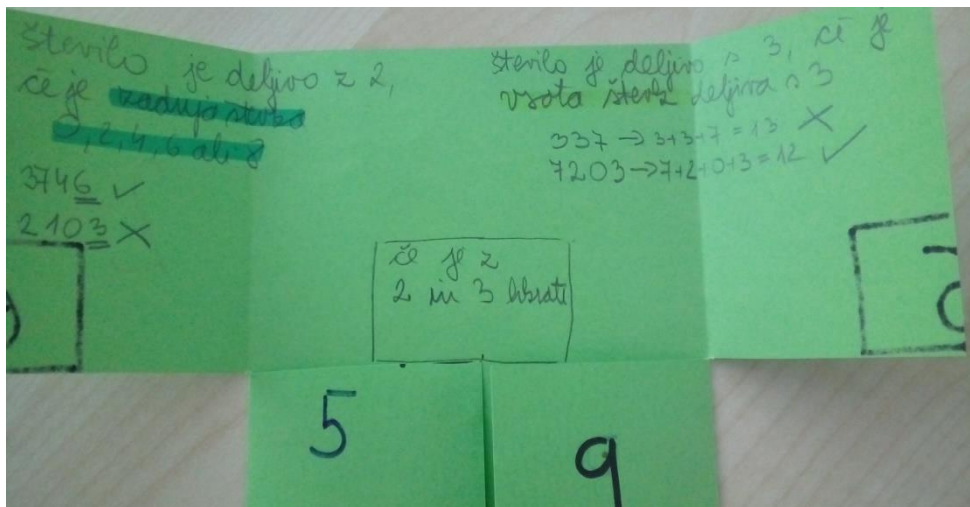 število je deljivo z 2,
če je zadnja števka
0, 2, 4, 6 ali 8
3746 ✓
2103 ✗
število je deljivo s 3, če je
vsota števk deljiva s 3
337 → 3+3+7 = 13 ✗
7203 → 7+2+0+3 = 12 ✓
če je z
2 in 3 hkrati
5
9